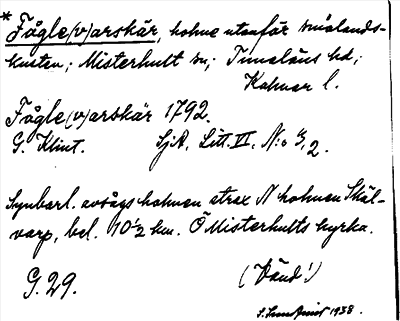 * Fågle(v)arskär, holme utanför smålands-
kusten; Misterhult sn; Tunaläns hd;
Kalmar l.
Fågle(v)arskär 1792.
G. Klint. SjA, Litt. VI, N:o 4, 2.
Synbarl. avsågs holmen strax N holmen Skäl-
varp, bel. 10 1/2 km. Ö Misterhults kyrka.
G. 29. (Vänd!)
1938.